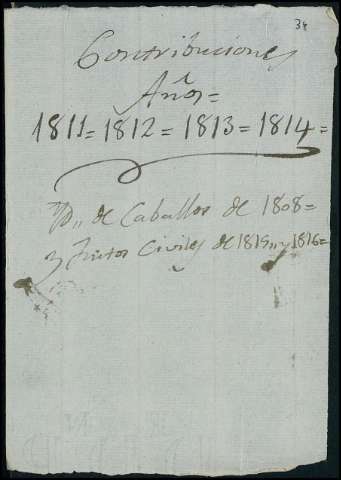 34
Contribuciones
Años=
1811=1812=1813=1814=
Yd,, de Caballos de 1808=
y Frutos Civiles de 1815,, y 1816=